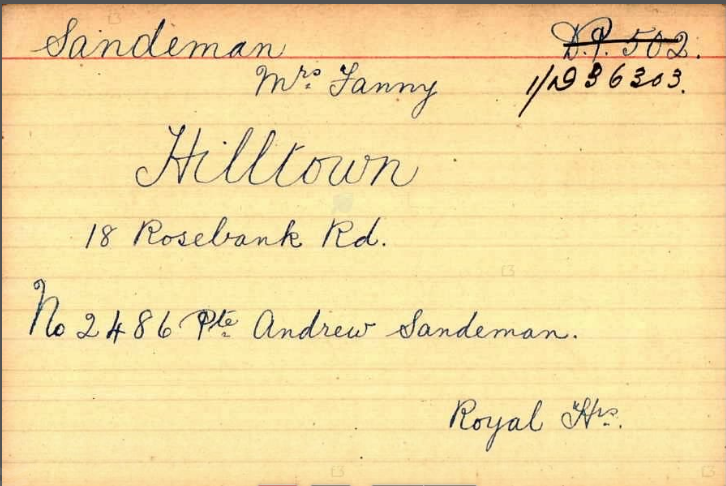 Sandeman D.P. 502.
Mrs. Fanny 1/D 36303.
Hilltown
18 Rosebank Rd.
No 2486 Pte. Andrew Sandeman.
Royal Hrs.